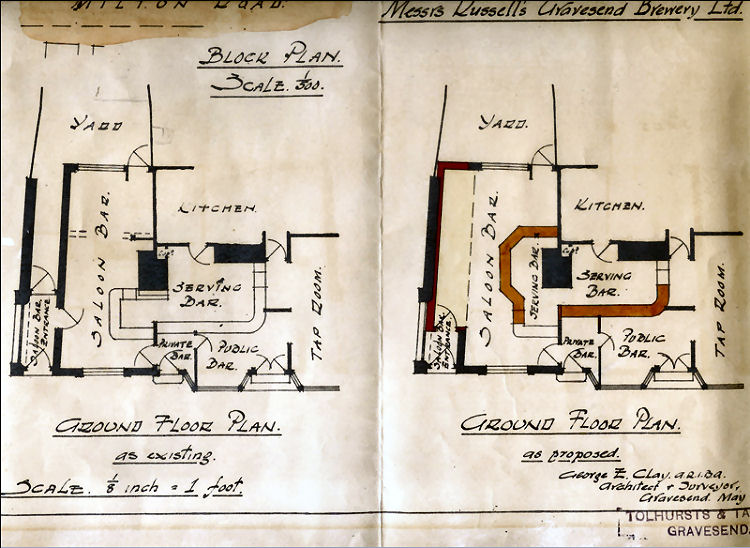 MILTON ROAD.
Messrs Russell's Gravesend Brewery Ltd.
BLOCK PLAN.
SCALE. 1/500.
YARD
KITCHEN.
SALOON BAR.
SERVING
BAR.
SALOON BAR
ENTRANCE.
PRIVATE
BAR.
PUBLIC
BAR.
TAP ROOM.
GROUND FLOOR PLAN.
as existing.
SCALE. 1/8 inch = 1 foot.
YARD.
KITCHEN.
SALOON BAR.
SERVING BAR.
SERVING
BAR.
SALOON BAR
ENTRANCE.
PRIVATE
BAR.
PUBLIC
BAR.
TAP ROOM.
GROUND FLOOR PLAN.
as proposed.
George E. Clay. A.R.I.B.A.
Architect & Surveyor,
Gravesend. May
TOLHURSTS & TA
GRAVESEND.